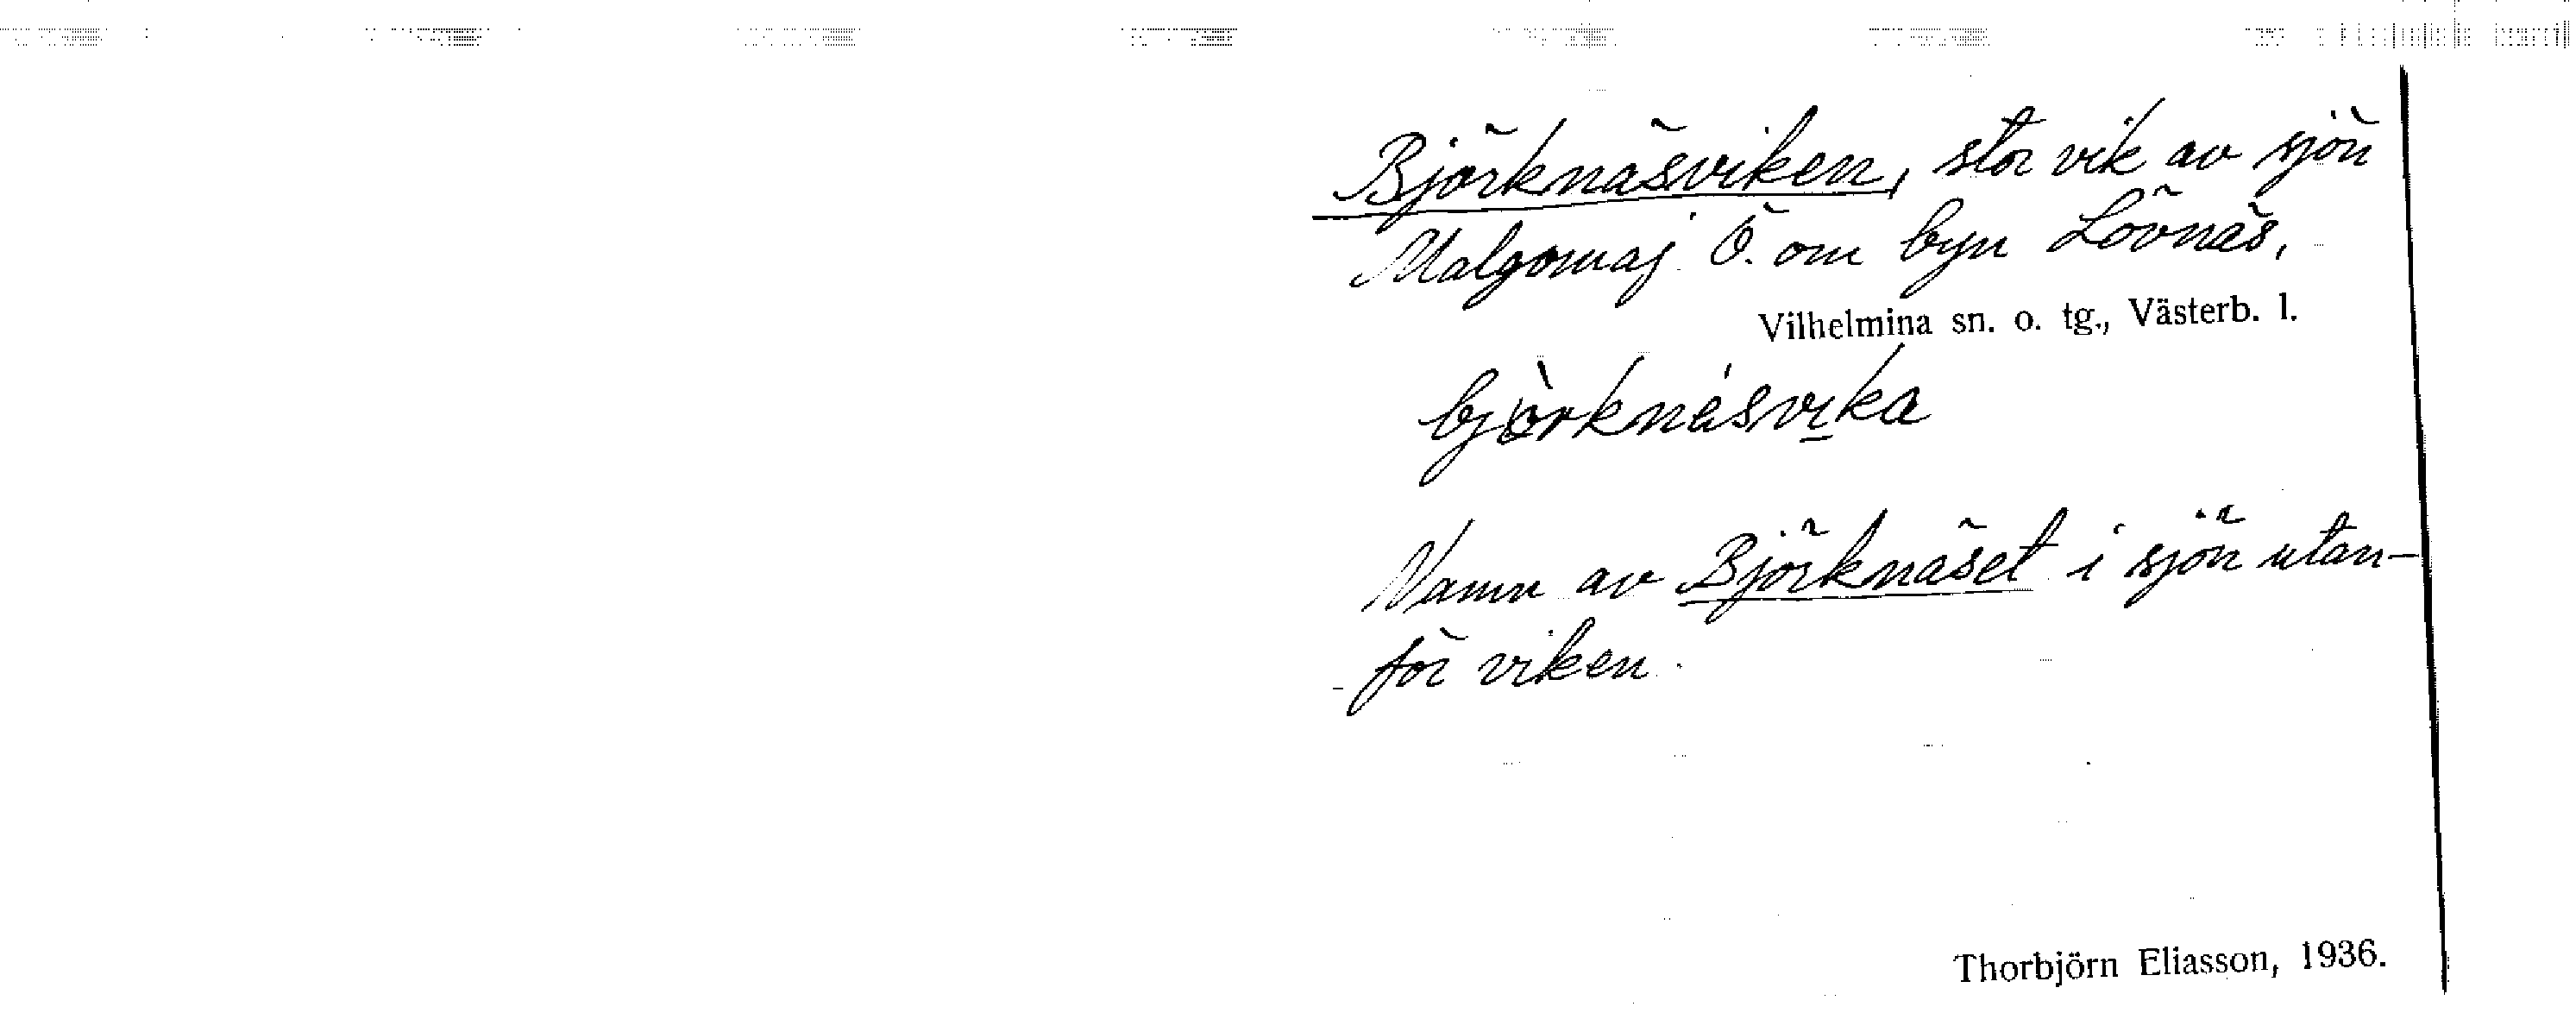 Björknäsviken, stor vik av sjön
Malgomaj Ö. om byn Lövnäs.
Vilhelmina sn. o. tg., Västerb. l.
bjòrknésvika
Namn av Björknäset i sjön utan-
för viken.
Thorbjörn Eliasson, 1936.